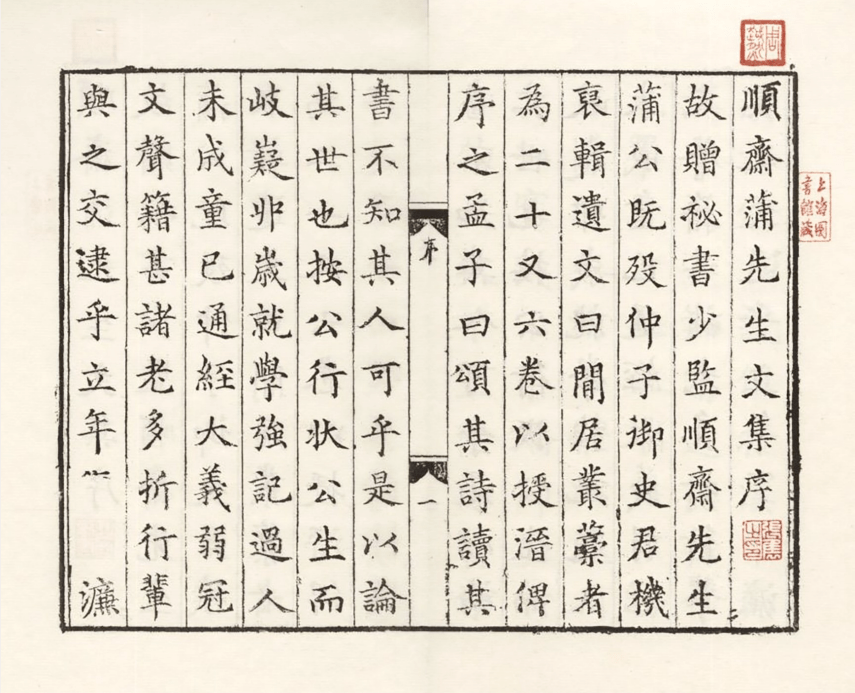 順齋蒲先生文集序
故贈祕書少監順齋先生
蒲公既歿仲子御史君機
裒輯遺文曰閒居叢藁者
為二十又六卷以授溍俾
序之孟子曰頌其詩讀其
序
一
書不知其人可乎是以論
其世也按公行狀公生而
岐嶷丱歲就學強記過人
未成童已通經大義弱冠
文聲籍甚諸老多折行輩
與之交逮乎立年 濂
上海圖書館藏